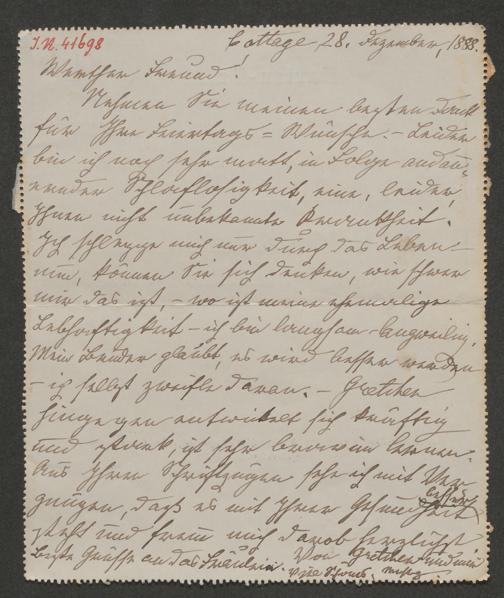 I.N. 41698
Cottage, 28. Dezember, 1888.
Werther Freund!
Nehmen Sie meinen besten Dank
für Ihre Feiertags=Wünsche. – Leider
bin ich noch sehr matt, in Folge andau-
ernder Schlaflosigkeit, eine, leider,
Ihnen nicht unbekannte Krankheit.
Ich schleppe mich nur durch das Leben –
nun, können Sie sich denken, wie schwer
mir das ist, – wo ist meine ehemalige
Lebhaftigkeit – ich bin langsam – langweilig.
Mein Bruder glaubt, es wird besser werden
– ich selbst zweifle daran. – Gretchen
hingegen entwickelt sich kräftig
und stark, ist sehr brav im Lernen.
Aus Ihren Schriftzügen sehe ich mit Ver-
gnügen, daß es mit Ihrer Gesundheit
besser
geht und freue mich darob herzlichst
Beste Grüße an das Fräulein. Von Gretchen und mir
viele